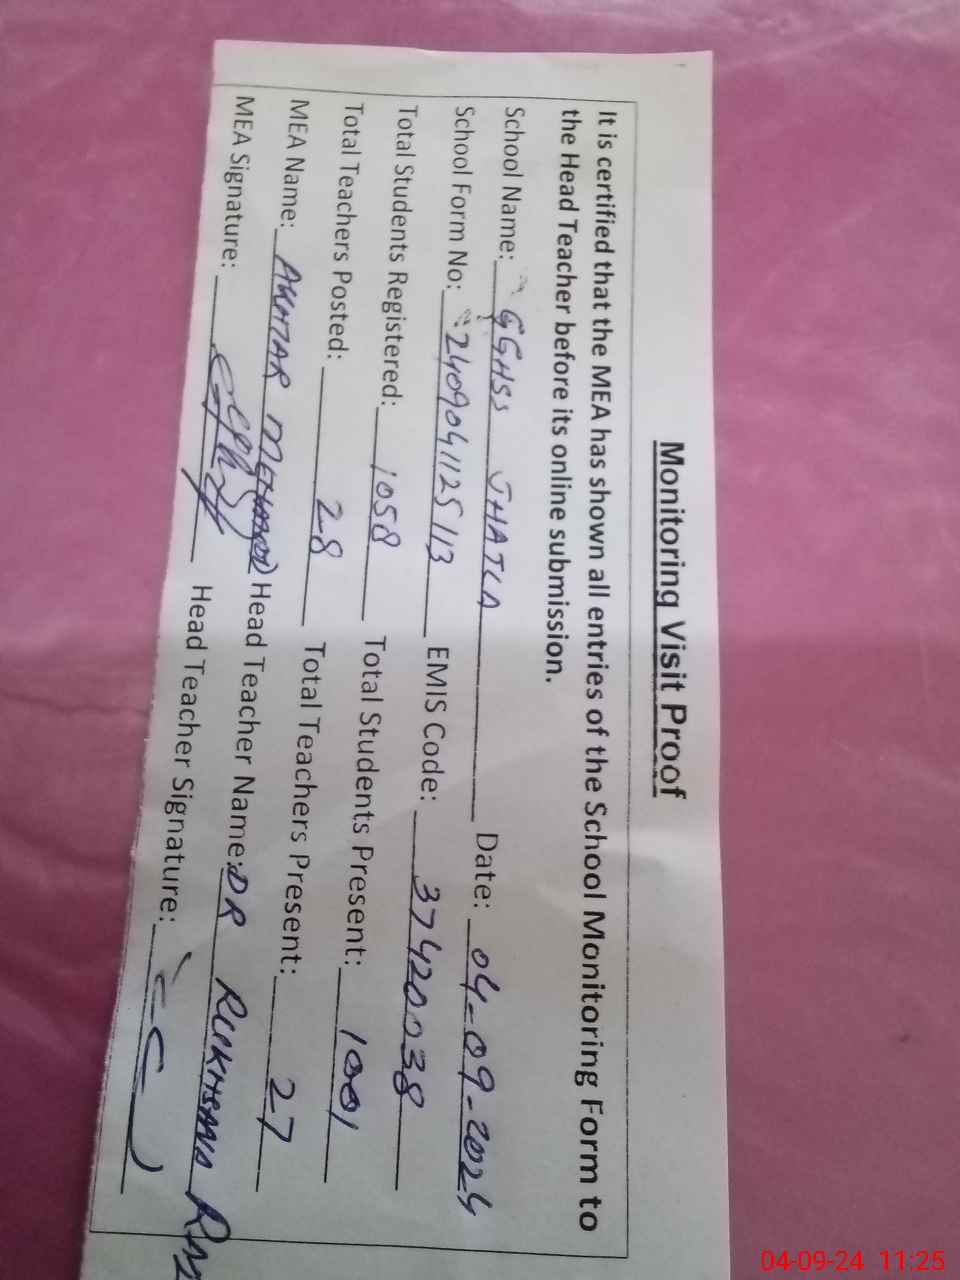 Monitoring Visit Proof
It is certified that the MEA has shown all entries of the School Monitoring Form to
the Head Teacher before its online submission.
School Name: GGHSS JHATLA Date: 04-09-2024
School Form No: 2409041125113 EMIS Code: 37420038
Total Students Registered: 1058 Total Students Present: 1001
Total Teachers Posted: 28 Total Teachers Present: 27
MEA Name: AKHTAR Head Teacher Name: DR RUKHSANA
MEA Signature: Head Teacher Signature:
04-09-24 11:25